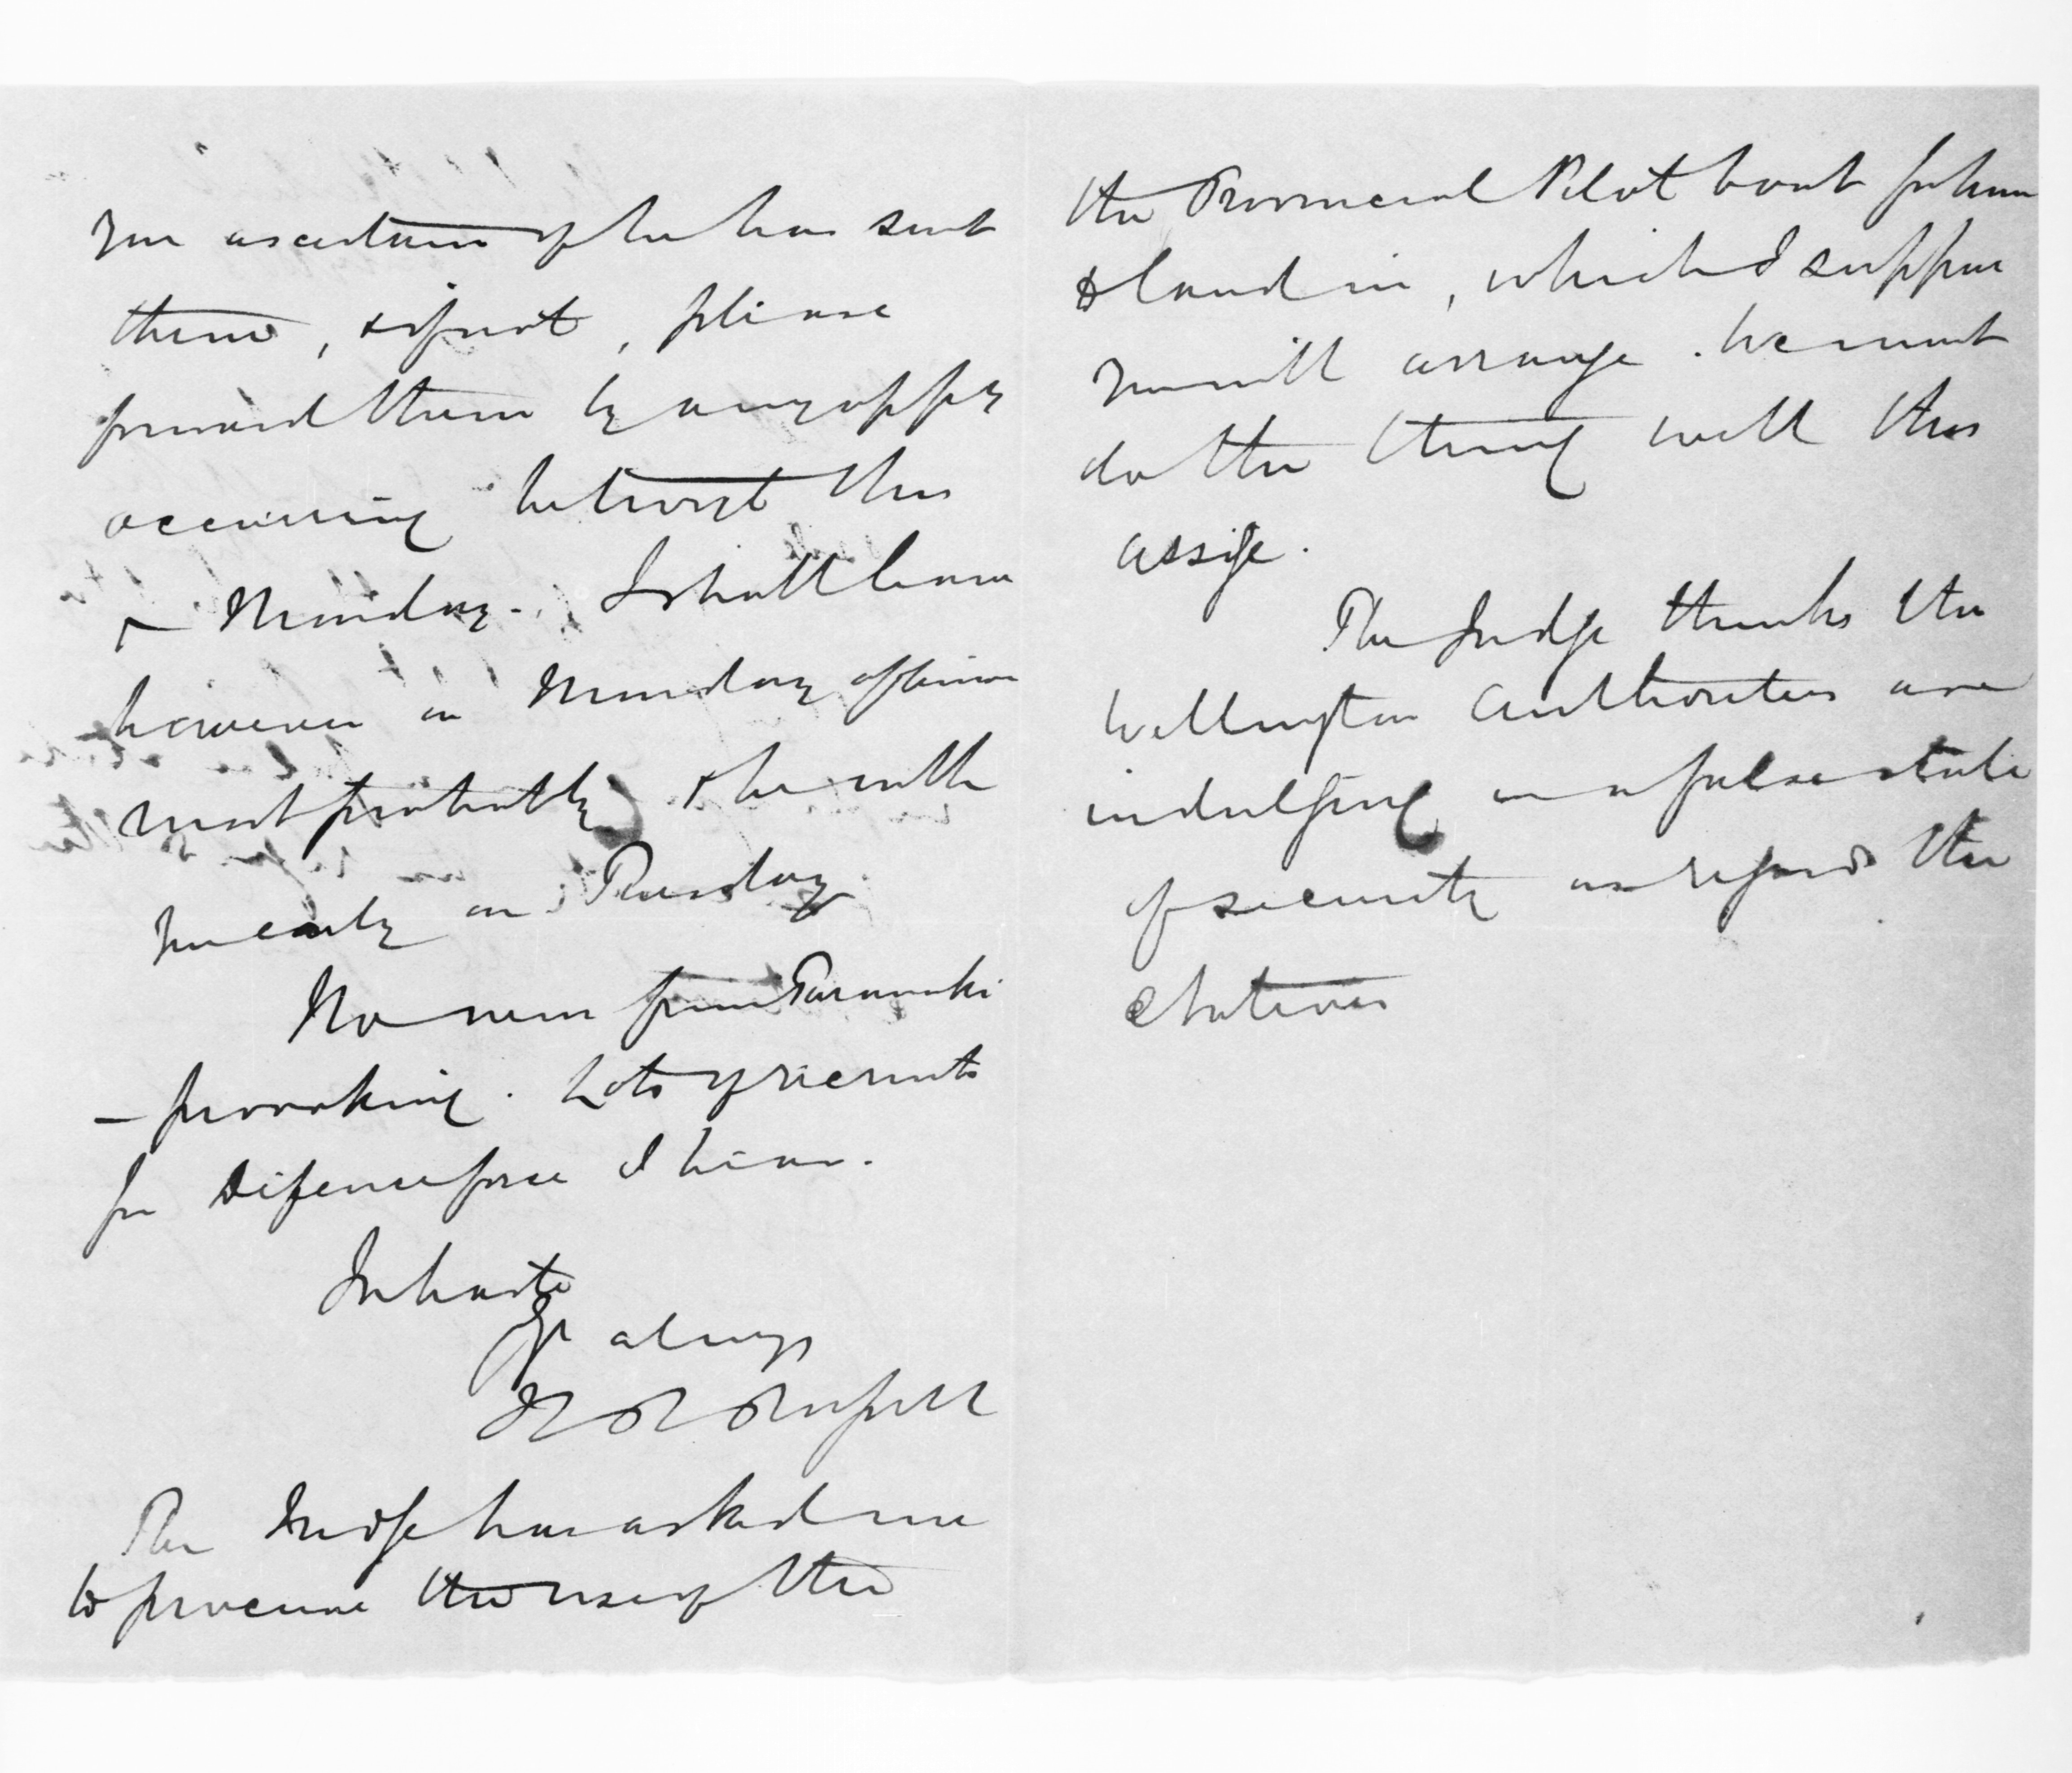 you ascertain if he has sent
them, & if not, please
forward them by any oppy
occurring betwixt this
& Monday. I shall leave
however on Monday afternoon
most probably & be with
you early on Tuesday
No news from Taranaki
- provoking. Lots of recruits
for Defence force I hear.
In haste
Yrs always
H R Russell
The Judge has asked me
to procure the use of the
the Provincial Pilot boat for him
to land in, which I suppose
you will arrange. We must
do the thing well this
assize.
The Judge thinks the
Wellington Authorities are
indulging in a false state
of security as regards the
Natives